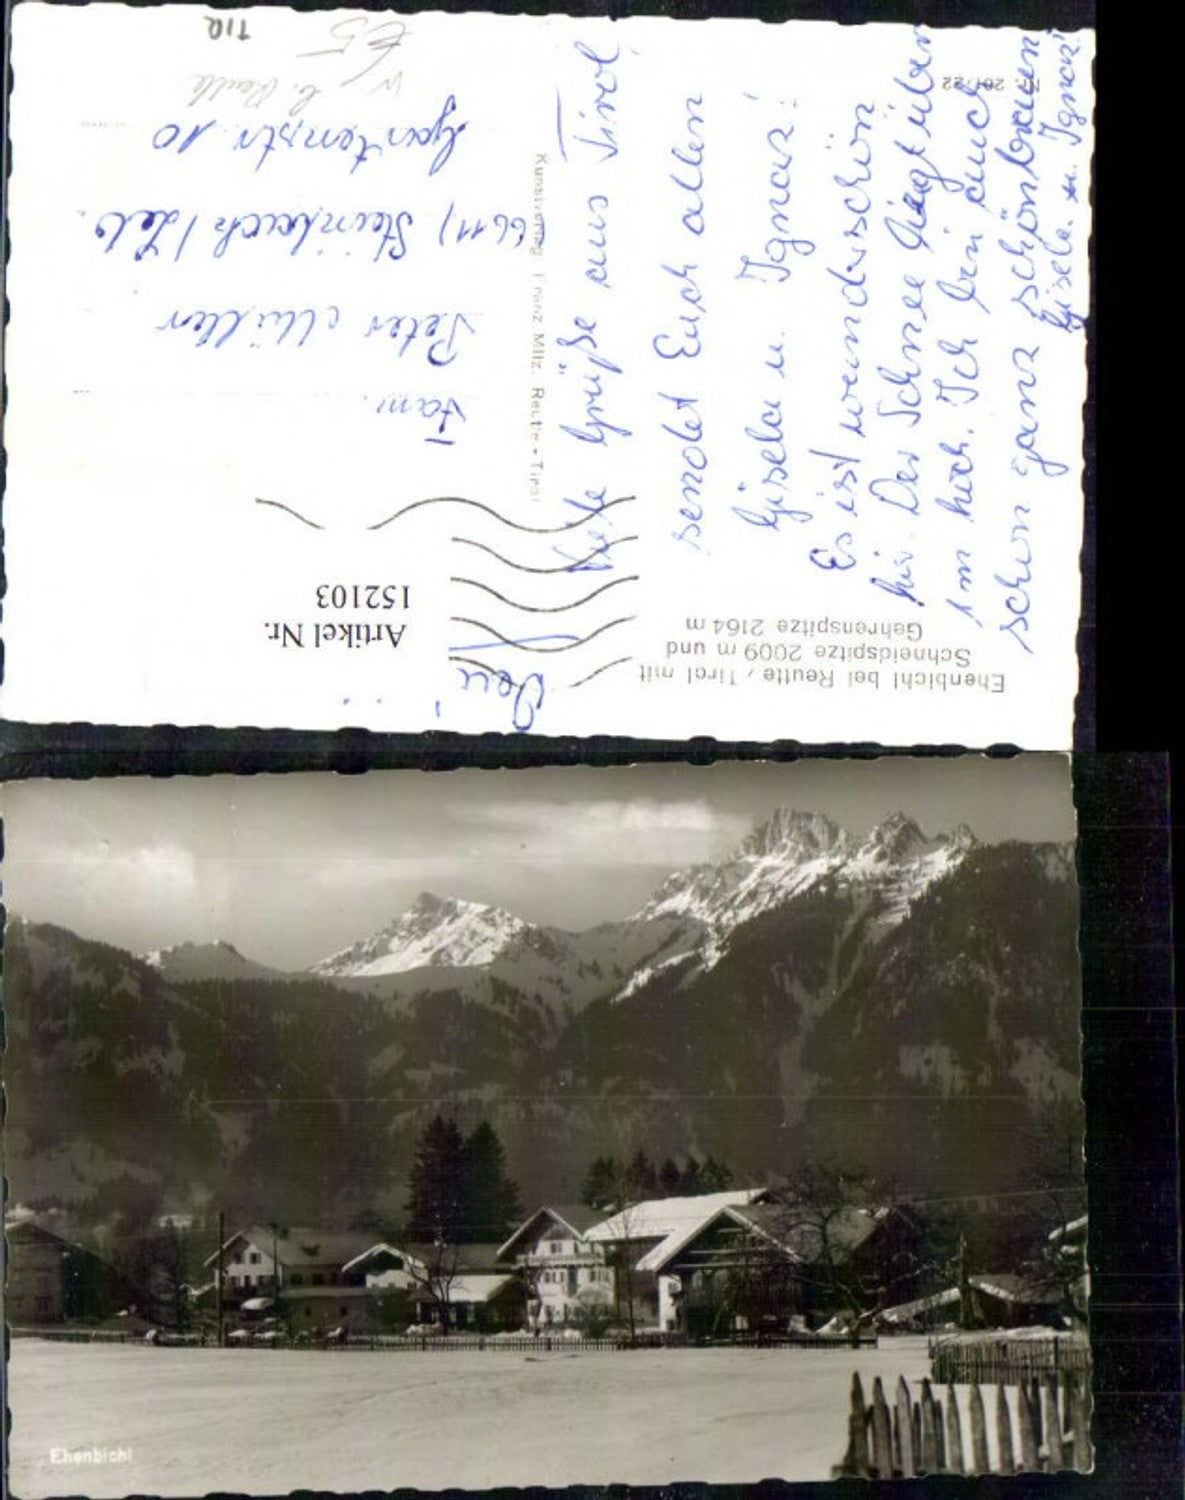 Ehenbichl bei Reutte / Tirol mit
Schneidspitze 2009 m und
Gehrenspitze 2164 m
Viele Grüße aus Tirol
sendet Euch allen
Gisela u. Ignaz!
Es ist wunderschön
hier. Der Schnee liegt über
1 m hoch. Ich bin auch
schon ganz schön braun
Gisela u. Ignaz!
Kunstverlag Franz Milz, Reutte - Tirol
Artikel Nr.
152103
Fam.
Peter Müller
(6611) Steinbach / Leb.
Gartenstr. 10
b. Reutte
€5
TIR
Ehenbichl